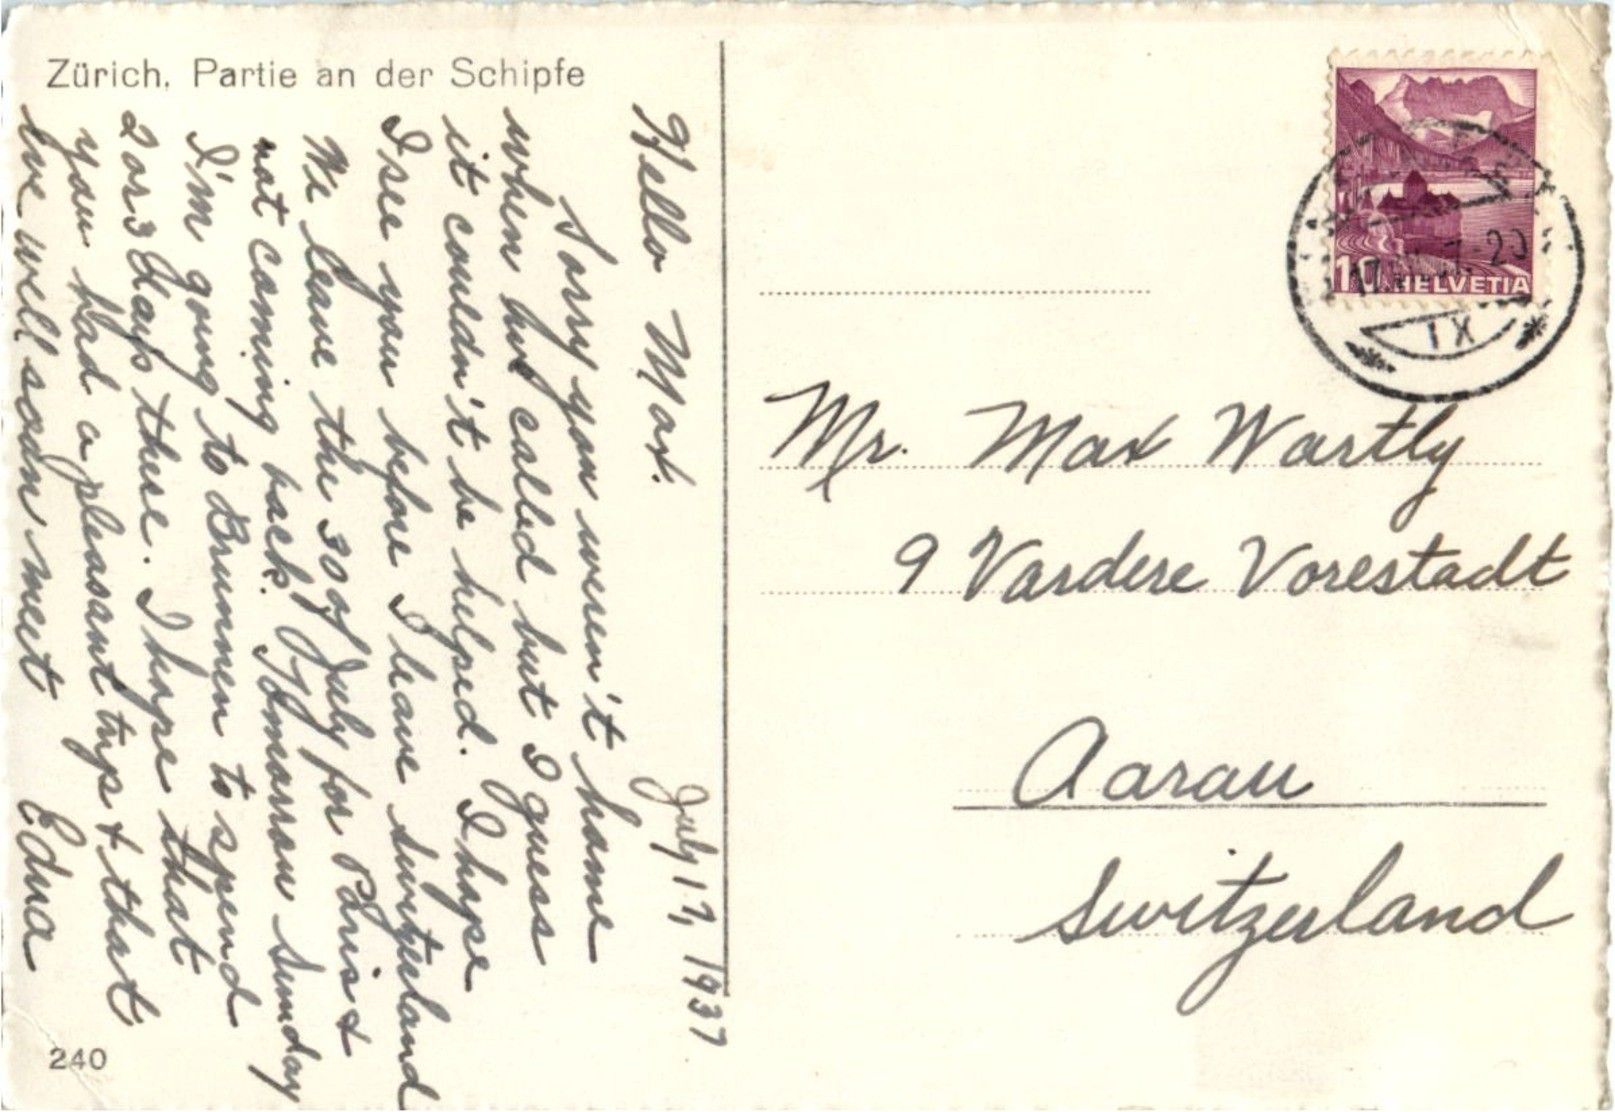 Zürich, Partie an der Schipfe
July 17, 1937
Hello Max.
Sorry you weren't home
when  called but I guess
it couldn't be helped. I hope
I see you before I leave Switzerland
We leave the 30 of July for Paris &
not coming back. Tomorrow Sunday
I'm going to Brunnen to spend
2 or 3 days there. I hope that
you had a pleasant trip & that
we will soon meet
Edna
240
10 HELVETIA
IX
Mr. Max Wartly
9 Vardere Vorestadt
Aarau
Switzerland